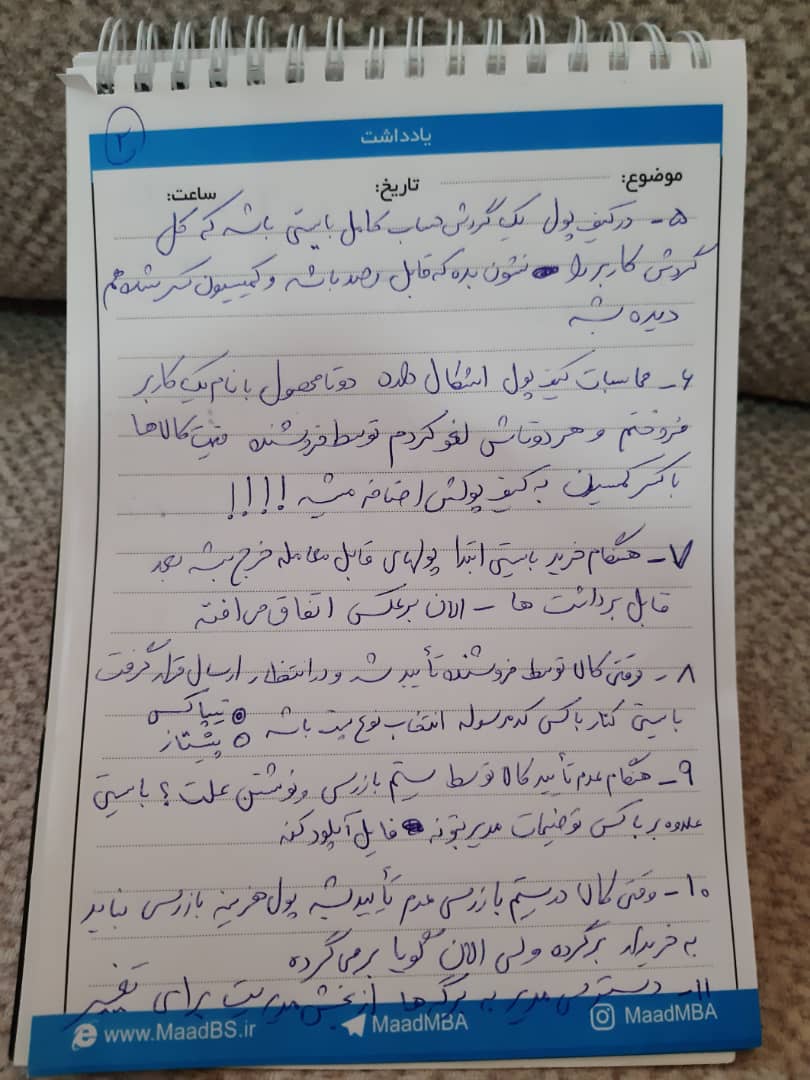 ۲
یادداشت
موضوع: تاریخ: ساعت:
۵- در کیف پول یک گردش حساب کامل بایستی باشه که کل
گردش کاربر را نشون بده که قابل رصد باشه و کمیسیون کسر شده هم
دیده بشه
۶- محاسبات کیف پول اشکال داره دو تا محصول با نام یک کاربر
فروختم و هر دوتاش لغو کردم توسط فروشنده قیمت کالاها
با کسر کمسیون به کیف پولش اضافه میشه !!!!
۷- هنگام خرید بایستی ابتدا پولهای قابل معامله خرج بشه بعد
قابل برداشت ها - الان برعکس اتفاق می افته
۸- وقتی کالا توسط فروشنده تأیید شد و در انتظار ارسال قرار گرفت
بایستی کنار باکس کد مرسوله انتخاب نوع پست باشه تیپاکس
پیشتاز
۹- هنگام عدم تأیید کالا توسط سیستم بازرسی و نوشتن علت؟ بایستی
علاوه بر باکس توضیحات مدیر بتونه فایل آپلود کنه
۱۰- وقتی کالا در سیستم بازرسی عدم تأیید بشه پول هزینه بازرسی نباید
به خریدار برگرده ولی الان گویا برمی گرده
۱۱- دسترسی مدیر به برگه ها از بخش مدیریت برای تغییر
www.MaadBS.ir MaadMBA MaadMBA